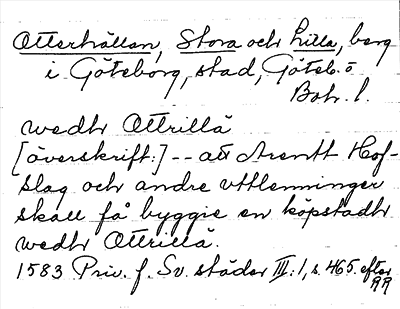 Otterhällan, Stora och Lilla, berg
i Göteborg, stad, Göteb. o
Boh. l.
wedtr Ottrillä
[överskrift:] -- att Arentt Hof-
slag och andre vttlenninger
skall få byggie en köpstadtr
wedtr Ottrillä.
1583 Priv. f. Sv. städer III:1, s. 465. efter
RR